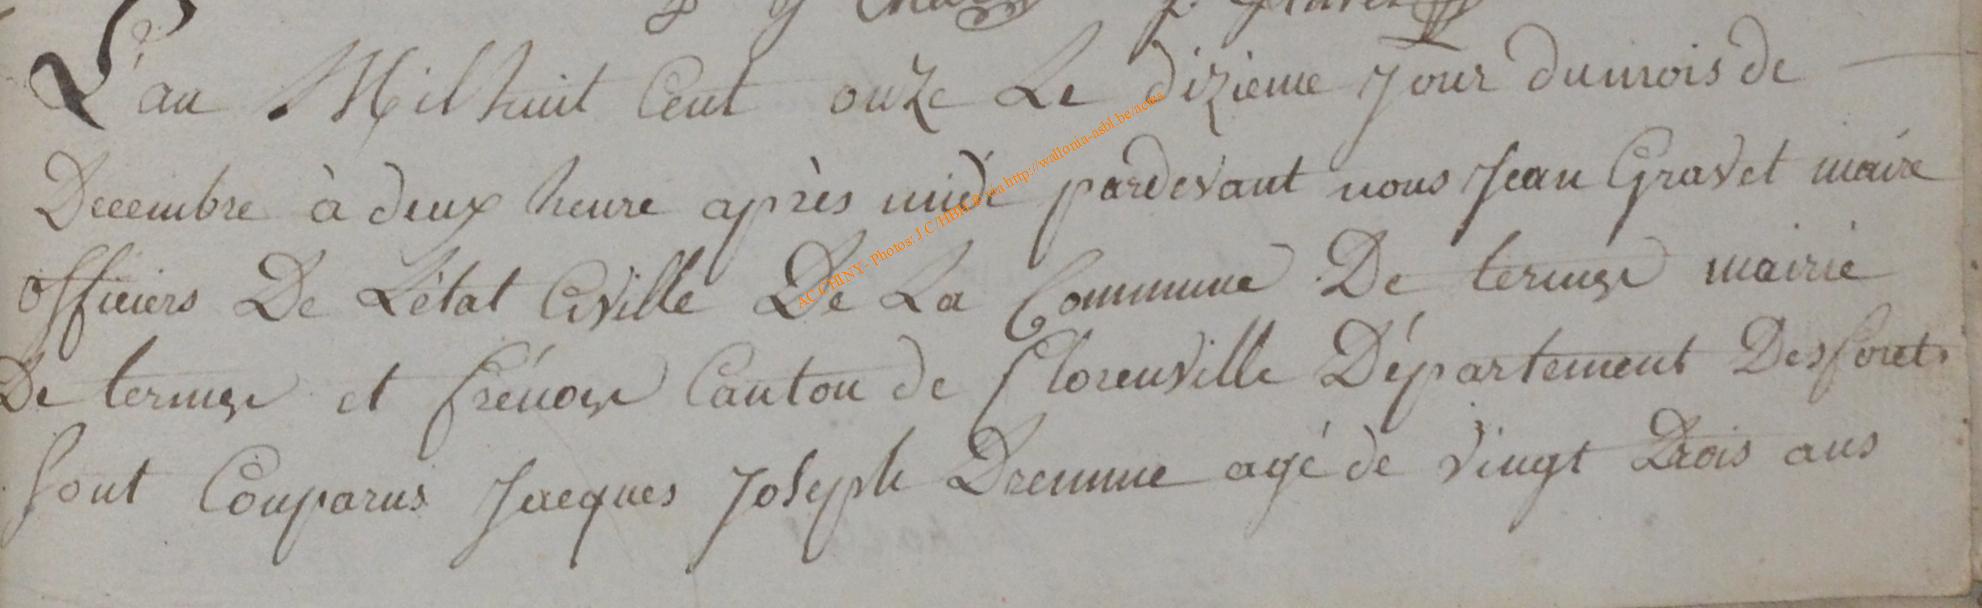 L'an Mil huit Cent onze Le dizieme Jour dumois de
Decembre à deux heure après midi pardevant nous Jean Gravet maire
officiers De L'état Civille De La Commune De termes mairie
De termes et frénois Canton de florenville Département Desforets
Sont Comparus Jacques Joseph age de vingt trois ans
AC CHINY - Photos: J.C HBK via http://wallonia-asbl.be/actes